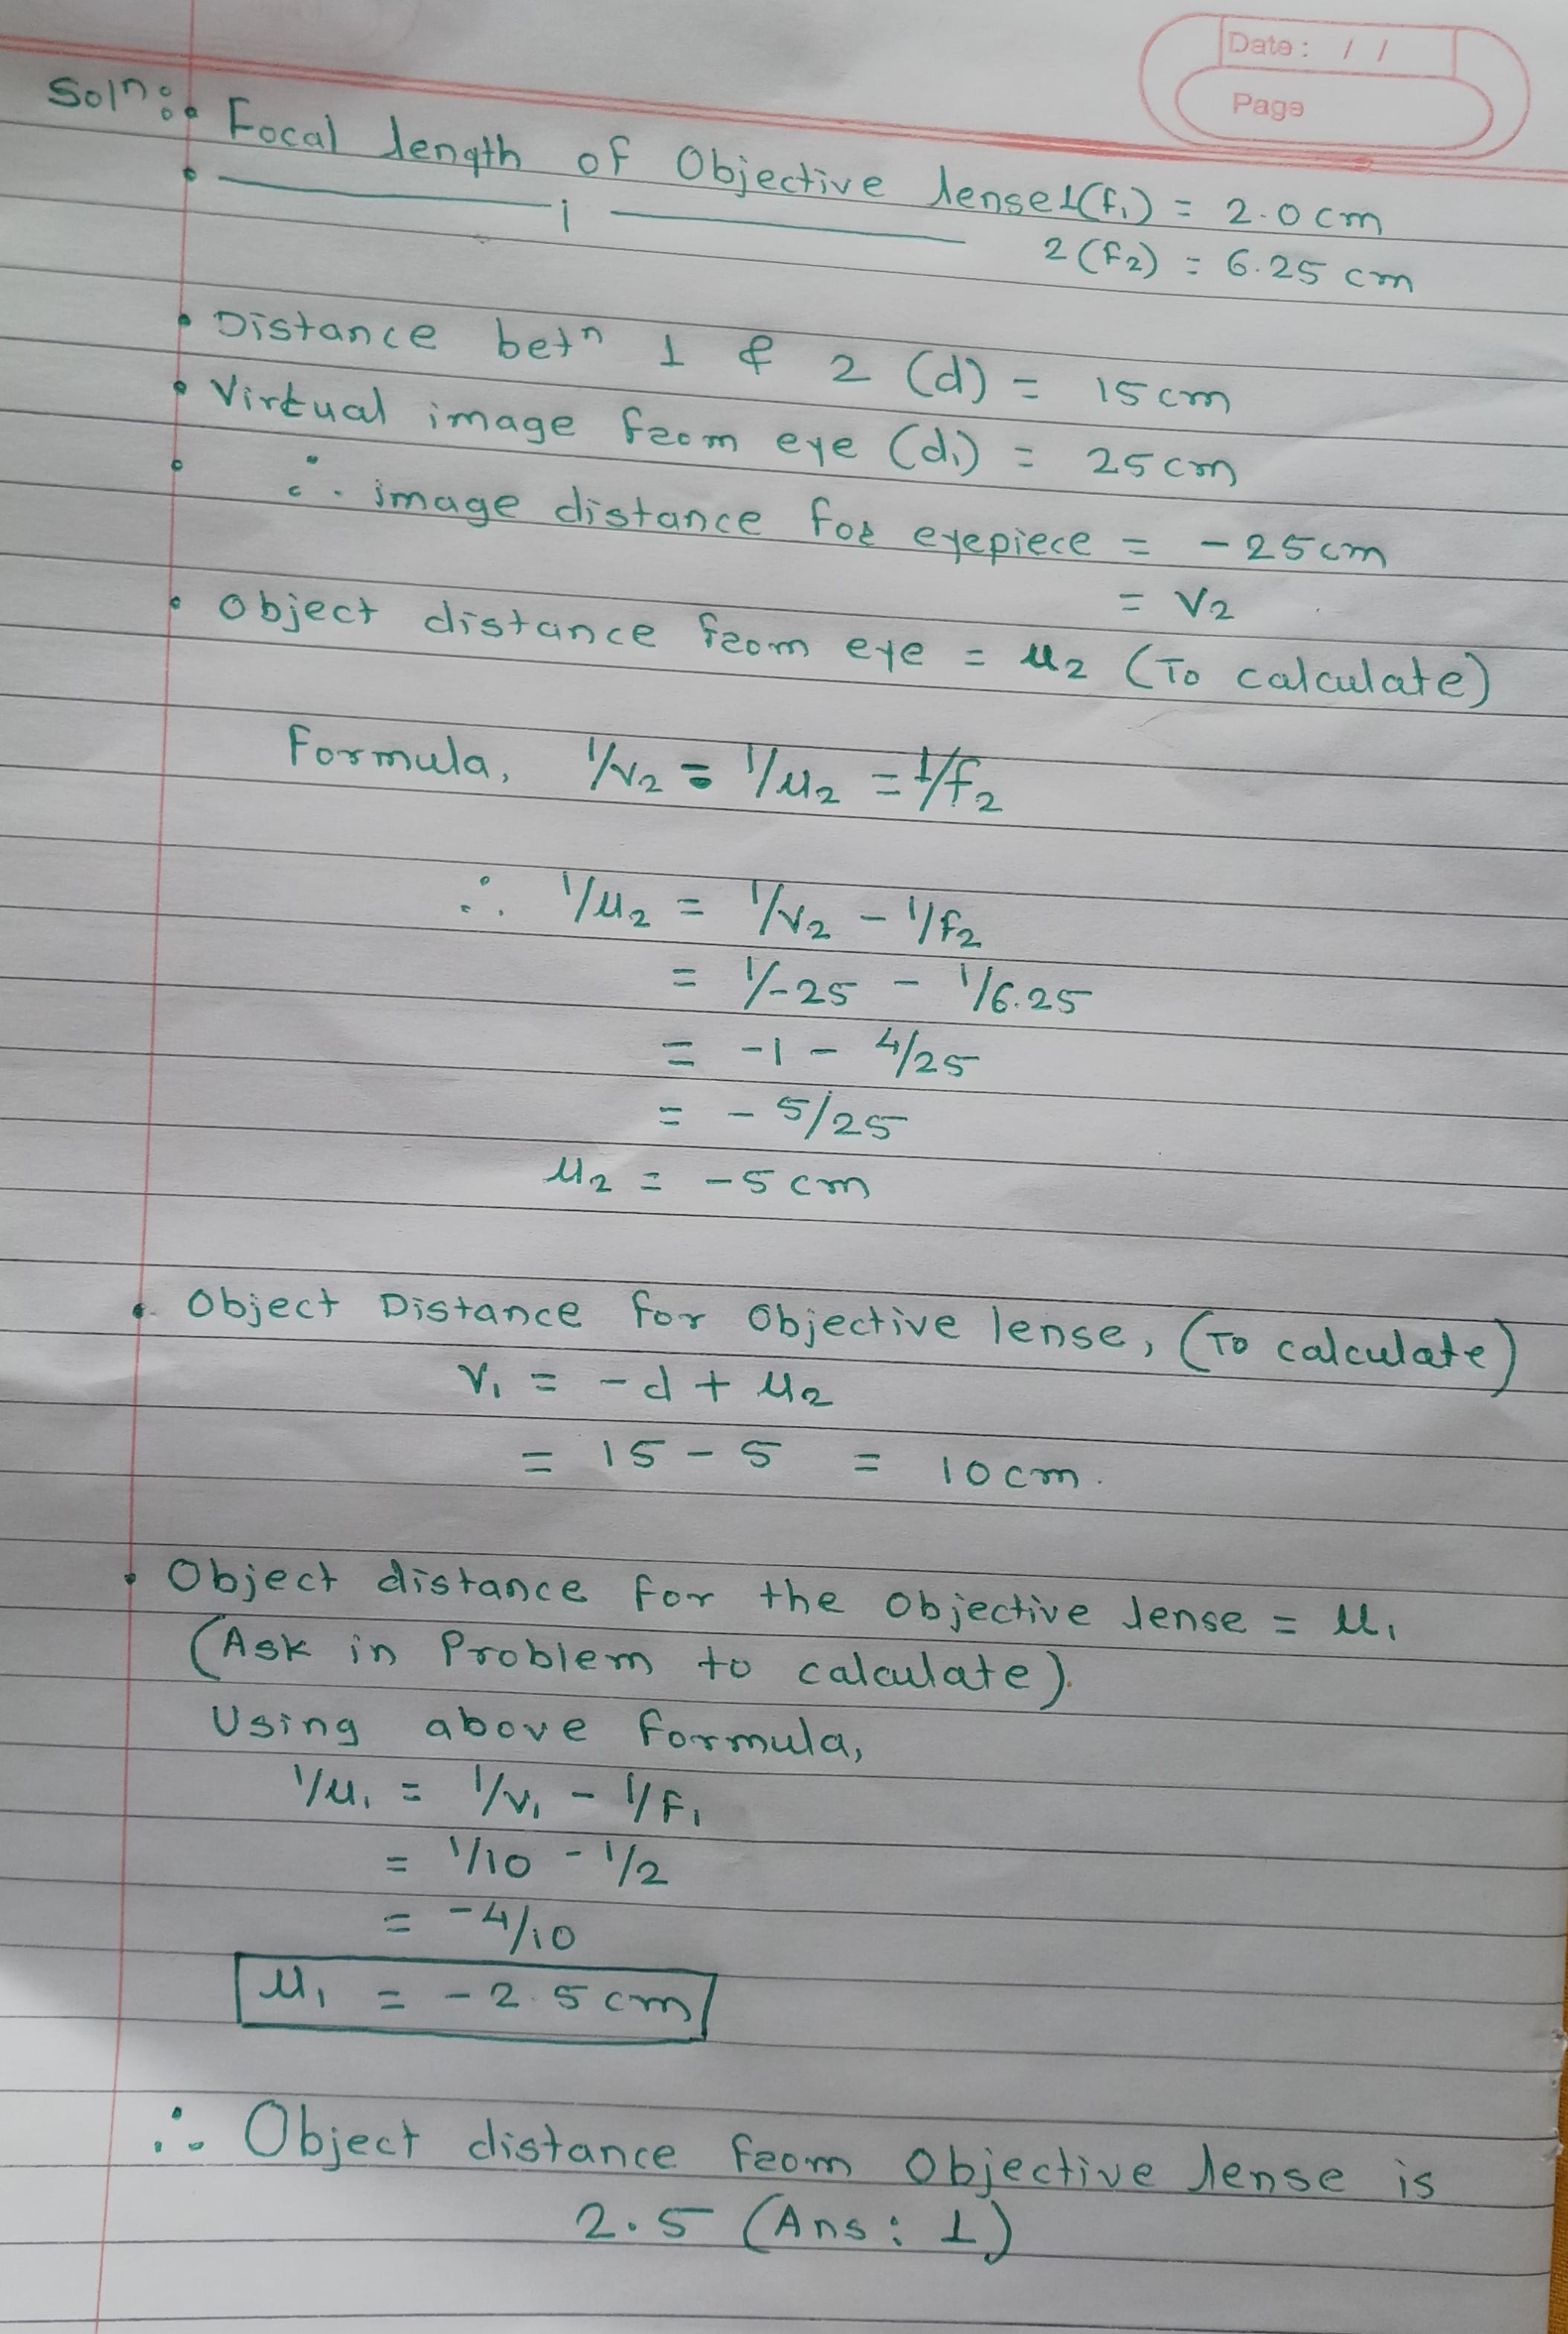 Date: / /
Page
Solⁿ:
• Focal length of Objective lense 1(f₁) = 2.0 cm
• ——— i ——— 2(f₂) = 6.25 cm
• Distance betⁿ 1 & 2 (d) = 15 cm
• Virtual image from eye (d₁) = 25 cm
• ∴ image distance for eyepiece = -25 cm
= v₂
• Object distance from eye = u₂ (To calculate)
Formula, 1/v₂ = 1/u₂ = 1/f₂
∴ 1/u₂ = 1/v₂ - 1/f₂
= 1/-25 - 1/6.25
= -1 - 4/25
= - 5/25
u₂ = -5 cm
• Object Distance for Objective lense, (To calculate)
v₁ = -d + u₂
= 15 - 5 = 10 cm.
• Object distance for the Objective lense = u₁
(Ask in Problem to calculate).
Using above formula,
1/u₁ = 1/v₁ - 1/F₁
= 1/10 - 1/2
= -4/10
u₁ = -2.5 cm
∴ Object distance from Objective lense is
2.5 (Ans: 1)